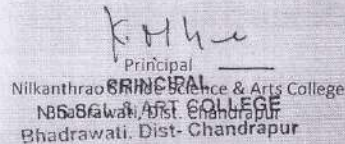 Principal
Nilkanthrao Shinde Science & Arts College
Bhadrawati, Dist. Chandrapur
PRINCIPAL
N.S. SCI. & ART COLLEGE
Bhadrawati. Dist- Chandrapur